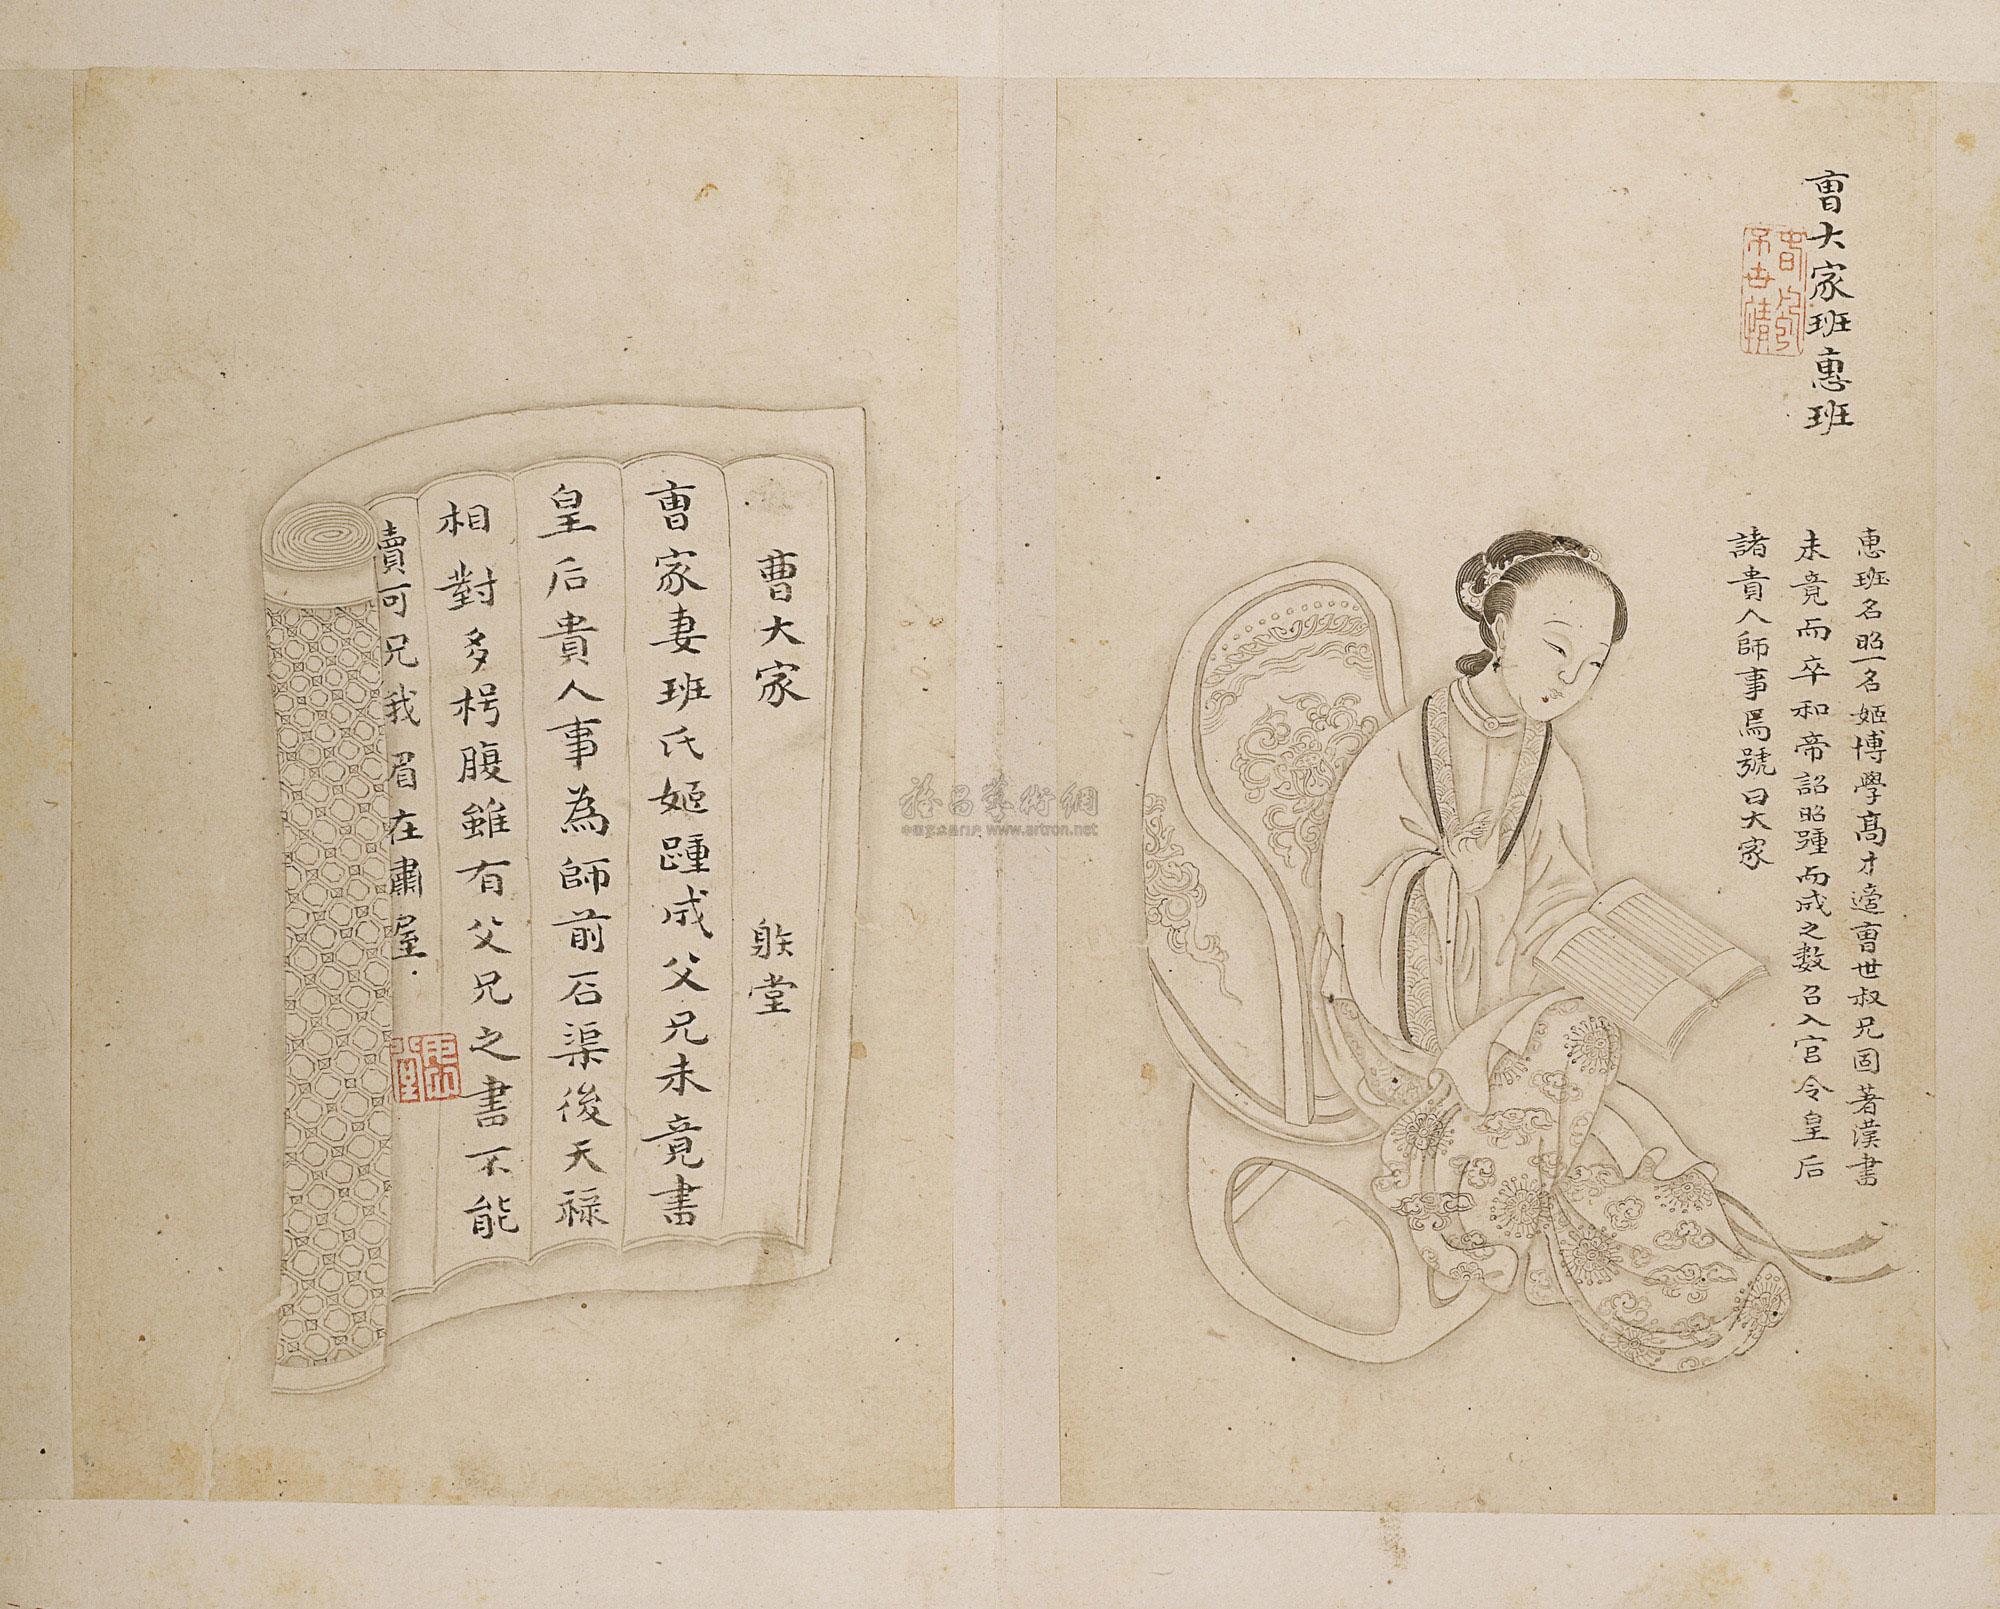 曺大家班惠班
惠班名昭一名姬博學髙才適曺世叔兄固著漢書
未竟而卒和帝詔昭踵而成之數召入宮令皇后
諸貴人師事焉號曰大家
曹大家
堂
曺家妻班氏姬踵成父兄未竟書
皇后貴人事為師前石渠後天禄
相對多枵腹雖有父兄之書不能
讀可兄我眉在肅屋
www.artron.net